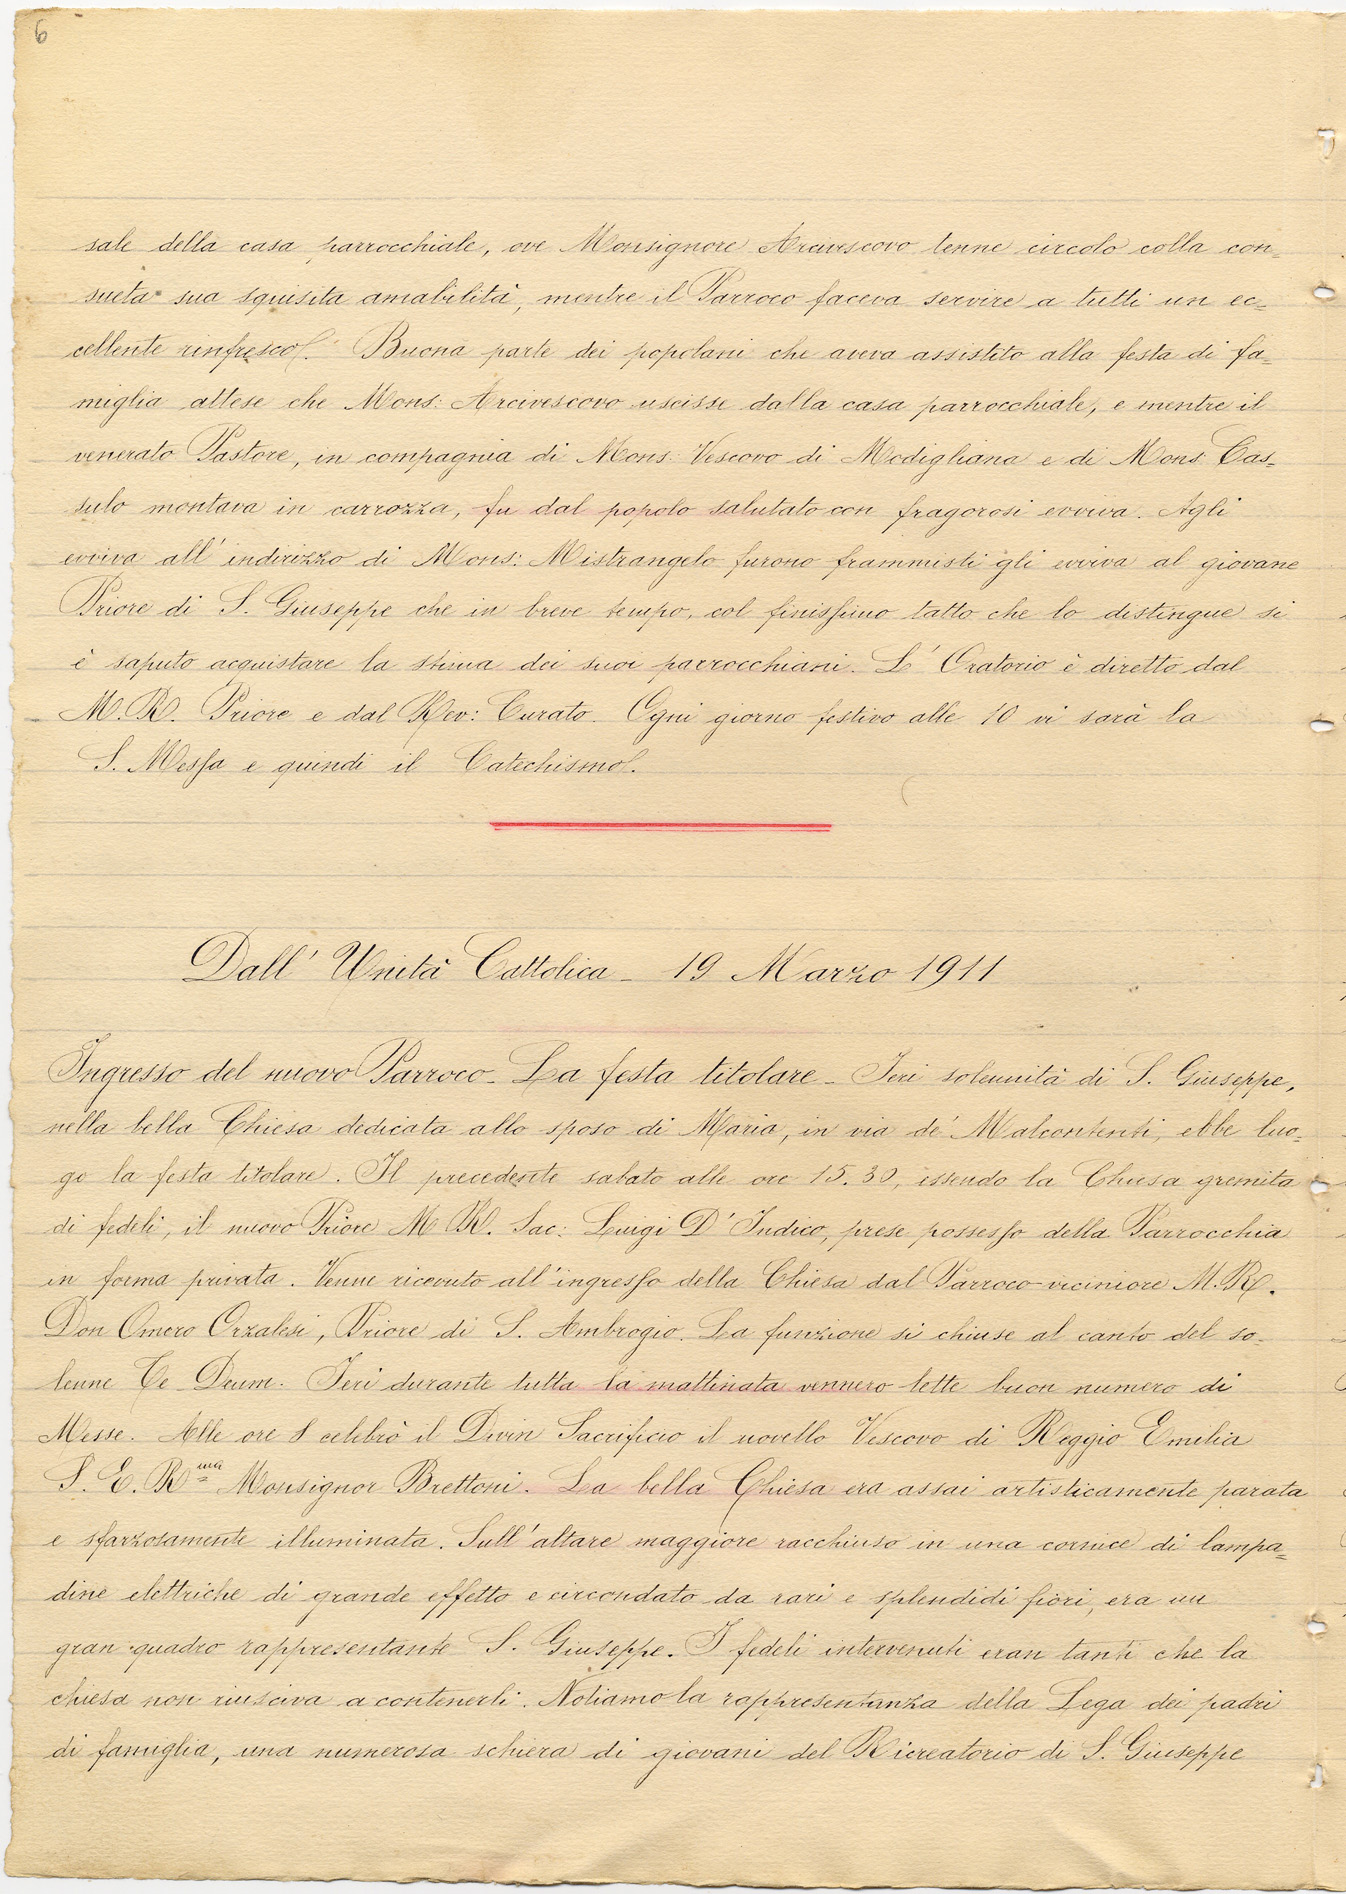 6
sale della casa parrocchiale, ove Monsignore Arcivescovo tenne circolo colla con=
sueta sua squisita amabilità, mentre il Parroco faceva servire a tutti un ec=
cellente rinfresco. Buona parte dei popolani che aveva assistito alla festa di fa=
miglia attese che Mons: Arcivescovo uscisse dalla casa parrocchiale, e mentre il
venerato Pastore, in compagnia di Mons: Vescovo di Modigliana e di Mons: Cas=
sulo montava in carrozza, fu dal popolo salutato con fragorosi evviva. Agli
evviva all' indirizzo di Mons: Mistrangelo furono frammisti gli evviva al giovane
Priore di S. Giuseppe che in breve tempo, col finissimo tatto che lo distingue si
è saputo acquistare la stima dei suoi parrocchiani. L' Oratorio è diretto dal
M. R. Priore e dal Rev: Curato. Ogni giorno festivo alle 10 vi sarà la
S. Messa e quindi il Catechismo.
Dall' Unità Cattolica - 19 Marzo 1911
Ingresso del nuovo Parroco - La festa titolare - Ieri solennità di S. Giuseppe,
nella bella Chiesa dedicata allo sposo di Maria, in via de' Malcontenti, ebbe luo-
go la festa titolare. Il precedente sabato alle ore 15.30, essendo la Chiesa gremita
di fedeli, il nuovo Priore M. R. Sac: Luigi D' Indico, prese possesso della Parrocchia
in forma privata. Venne ricevuto all' ingresso della Chiesa dal Parroco viciniore M. R.
Don Omero Orzalesi, Priore di S. Ambrogio. La funzione si chiuse al canto del so-
lenne Te Deum. Ieri durante tutta la mattinata vennero lette buon numero di
Messe. Alle ore 8 celebrò il Divin Sacrificio il novello Vescovo di Reggio Emilia
S. E. Rma Monsignor Brettoni. La bella Chiesa era assai artisticamente parata
e sfarzosamente illuminata. Sull' altare maggiore racchiuso in una cornice di lampa=
dine elettriche di grande effetto e circondato da rari e splendidi fiori, era un
gran quadro rappresentante S. Giuseppe. I fedeli intervenuti eran tanti che la
chiesa non riusciva a contenerli. Notiamo la rappresentanza della Lega dei padri
di famiglia, una numerosa schiera di giovani del Ricreatorio di S. Giuseppe